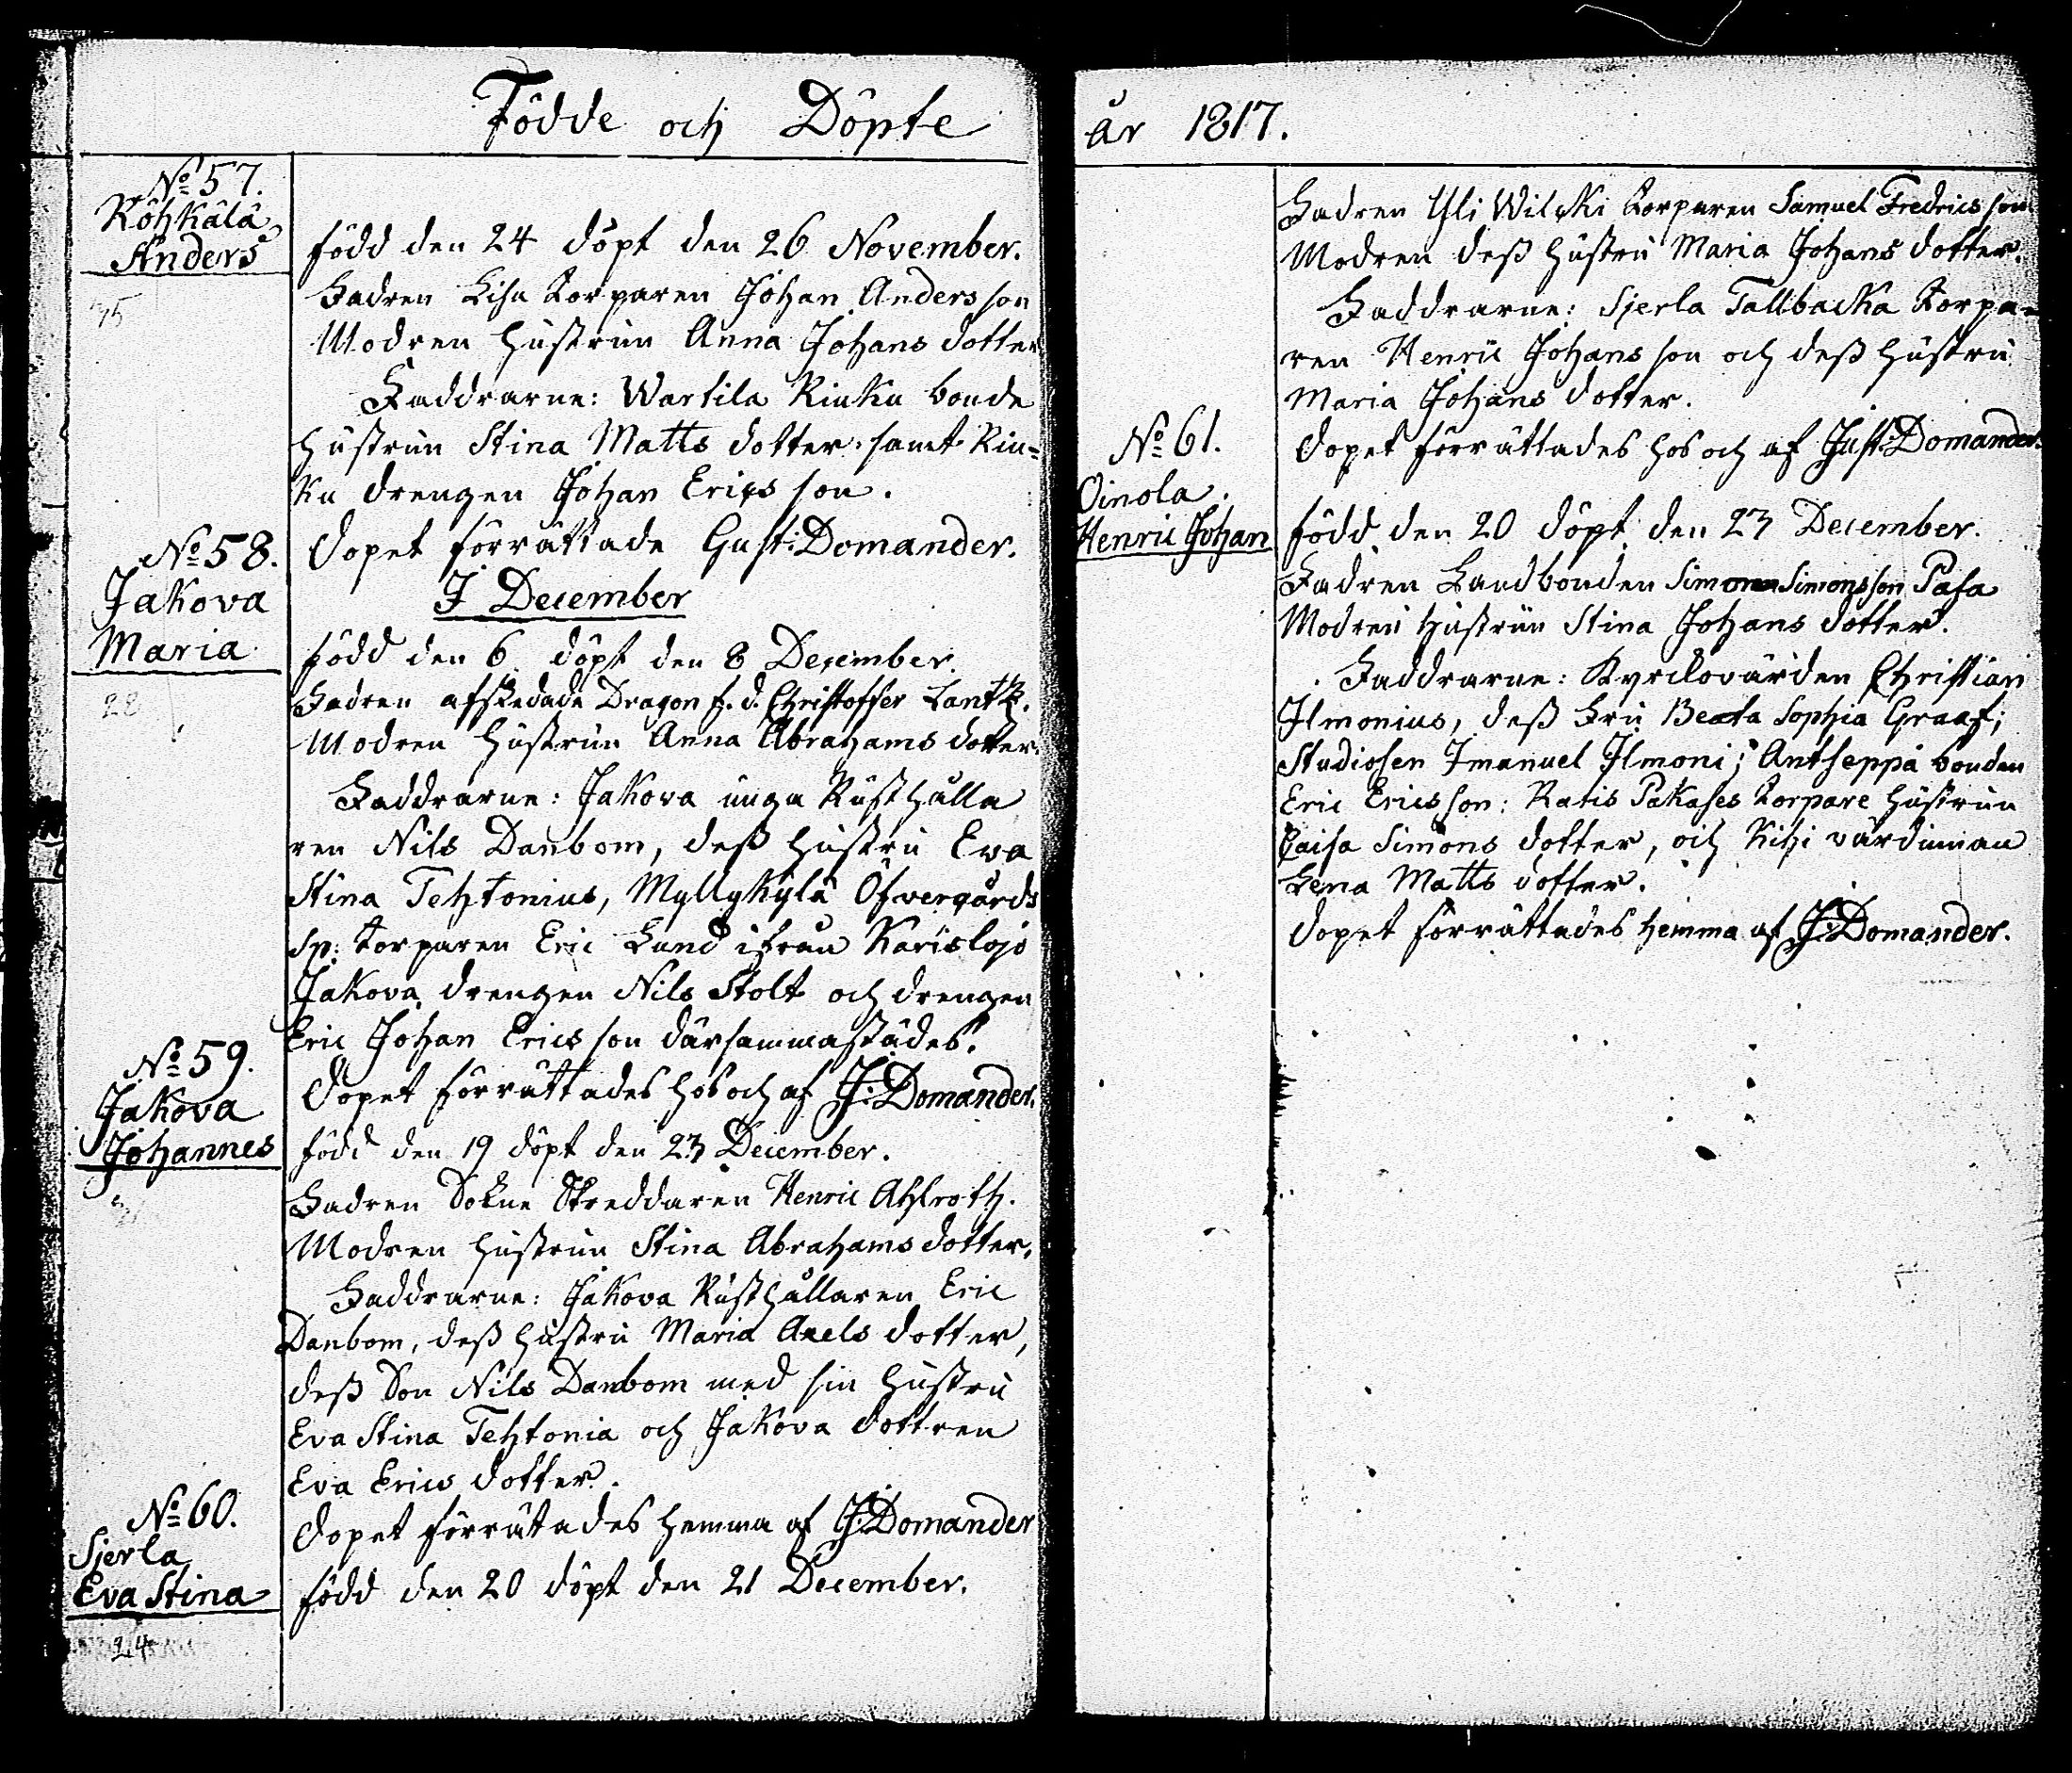 Födde och Döpte
No 57.
Röhkälä
Anders
75
född den 24 döpt den 26 November.
Fadren Lisu Torparen Johan Andersson
Modren hustrun Anna Johans dotter
Faddrarne: Wartila Kinku bonde
hustrun Stina Matts dotter samt Kin=
ku drengen Johan Erics son.
No 58.
Dopet förrättade Gust: Domander.
I December
Jakova
Maria
28
född den 6 döpt den 8 December.
Fadren afskedade Dragon f. d. Christoffer Lantz.
Modren hustrun Anna Abrahams dotter.
Faddrarne: Jakova unga Rusthålla
ren Nils Danbom, dess hustru Eva
Stina Tehtonius, Myllykylä Öfvergårds
sp: torparen Eric Lund ifrån Karislojo
Jakova drengen Nils Stolt och drengen
Eric Johan Erics son därsammastädes.
No 59.
Jakova
Johannes
Dopet förrättades hos och af J: Domander.
född den 19 döpt den 23 December.
Fadren Sokne Skreddaren Henric Ahlroth.
Modren hustrun Stina Abrahams dotter.
Faddrarne: Jakova Rusthållaren Eric
Danbom, dess hustru Maria Axels dotter,
dess Son Nils Danbom med sin hustru
Eva Stina Tehtonia och Jakova dottren
Eva Erics dotter.
No 60.
Sjerla
Eva Stina
24
Dopet förrättades hemma af J: Domander
född den 20 döpt den 21 December.
år 1817.
Fadren Yli Wilkki Torparen Samuel Fredrics son
Modren dess hustru Maria Johans dotter.
Faddrarne: Sjerla Tallbacka Torpa=
ren Henric Johans son och dess hustru
Maria Johans dotter.
Dopet förrättades hos och af Just: Domander.
No 61.
Oinola
Henric Johan
född den 20 döpt den 23 December.
Fadren Landbonden Simon Simonsson Pasa
Modren hustrun Stina Johans dotter.
Faddrarne: Kyrckovärden Christian
Ilmonius, dess Fru Beata Sophia Graaf;
Studiosen Imanuel Ilmoni; Antseppä bonden
Eric Ericsson: Ratis Pakases Torpare hustrun
Caisa Simons dotter, och Kihi värdinnan
Lena Matts dotter.
Dopet förrättades hemma af J: Domander.